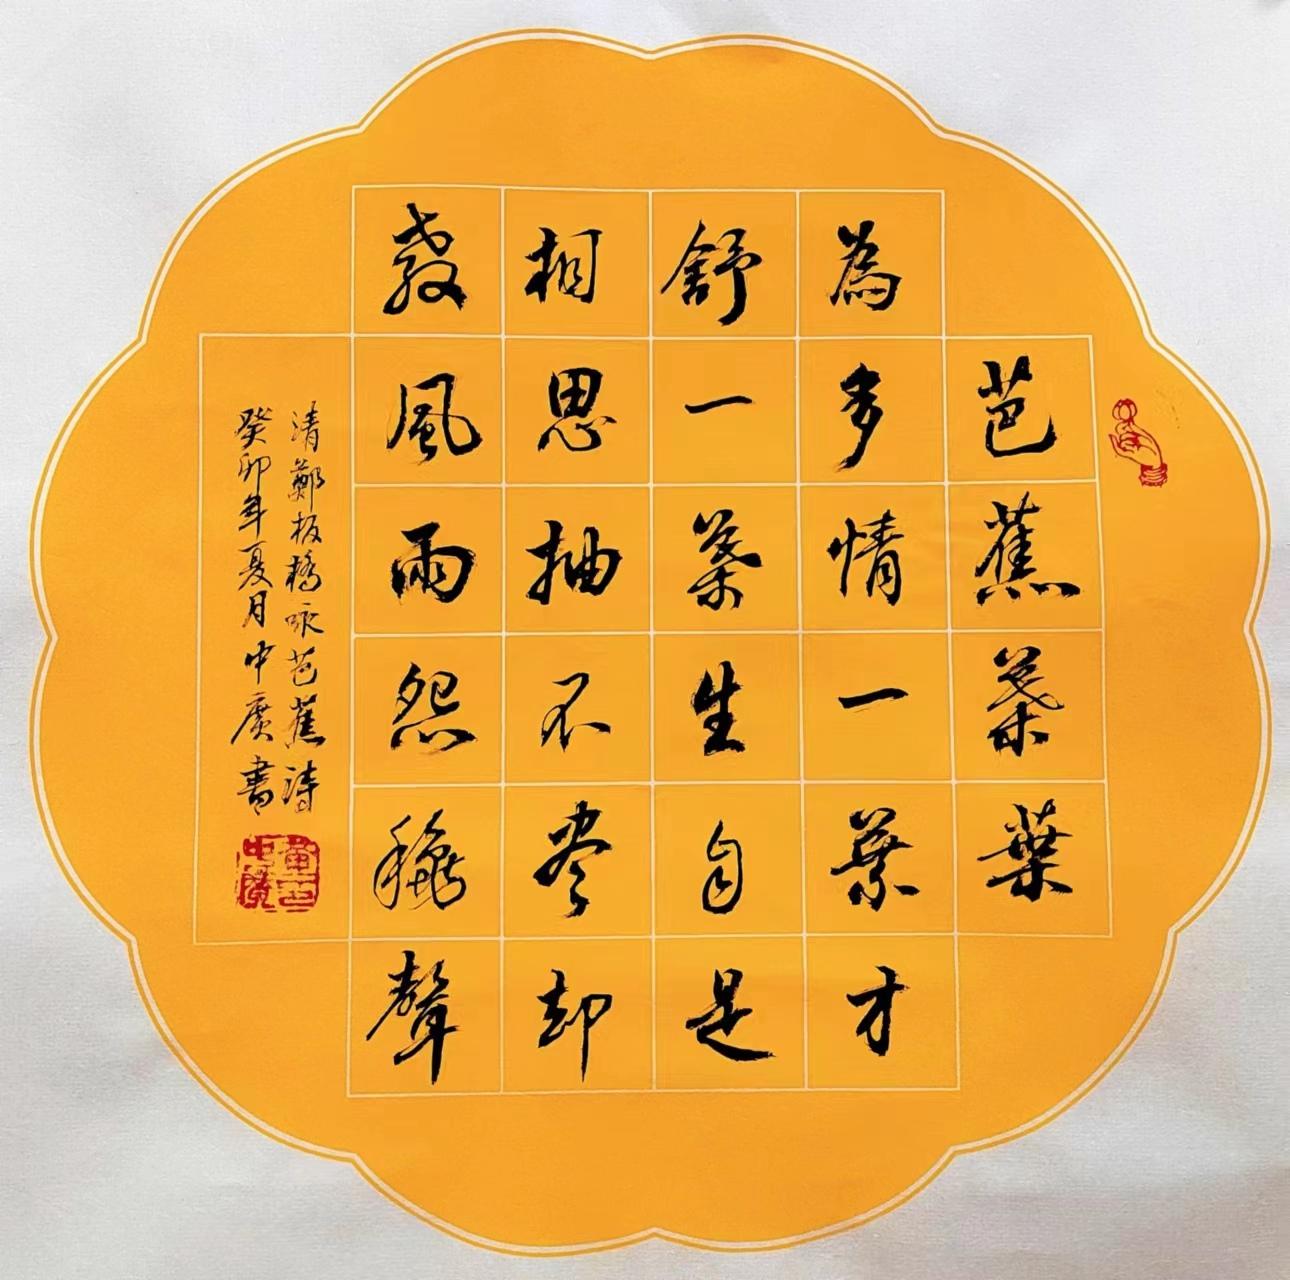 芭蕉葉葉
為多情一葉才
舒一葉生自是
相思抽不尽却
教風雨怨穐聲
清鄭板橋咏芭蕉詩
癸卯年夏月中廣書